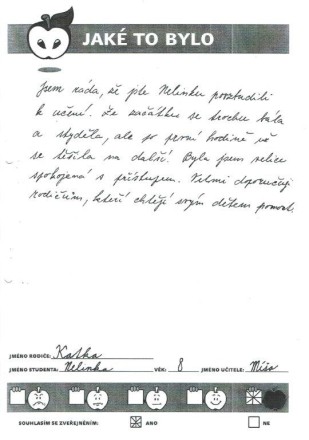 JAKÉ TO BYLO
Jsem ráda, že jste Nelinku povzbudili
k učení. Ze začátku se trochu bála
a styděla, ale po první hodině už
se těšila na další! Byla jsem velice
spokojená s přístupem. Velmi doporučuji
rodičům, kteří chtějí svým dětem pomoct.
JMÉNO RODIČE: Katka
JMÉNO STUDENTA: Nelinka VĚK: 8 JMÉNO UČITELE: Míša
SOUHLASÍM SE ZVEŘEJNĚNÍM: ANO NE